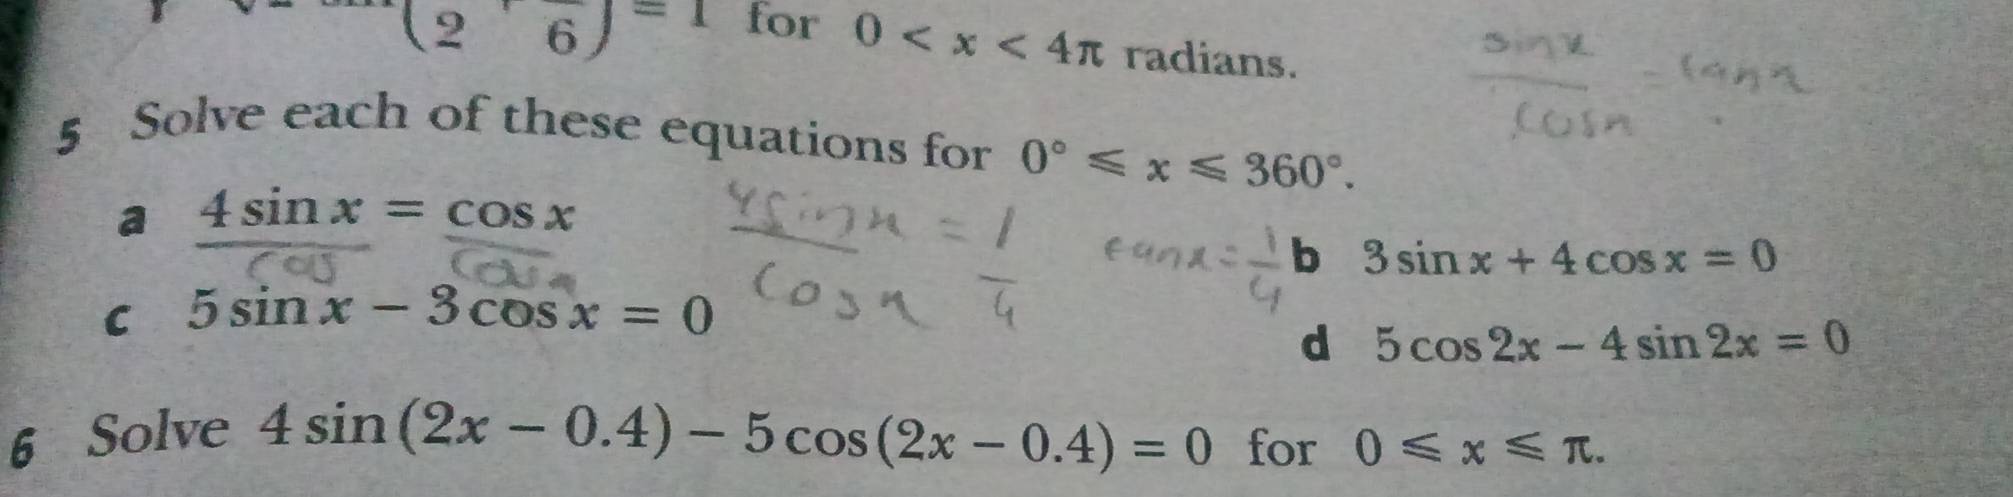 (2 6) = 1 for 0 < x < 4π radians.
sinx / cosx = tanx
5 Solve each of these equations for 0° ⩽ x ⩽ 360°.
a 4 sin x = cos x
cos cosx
4sinx / cosx = 1 / 4
tanx = 1/4
b 3 sin x + 4 cos x = 0
c 5 sin x − 3 cos x = 0
d 5 cos 2x − 4 sin 2x = 0
6 Solve 4 sin (2x − 0.4) − 5 cos (2x − 0.4) = 0 for 0 ⩽ x ⩽ π.